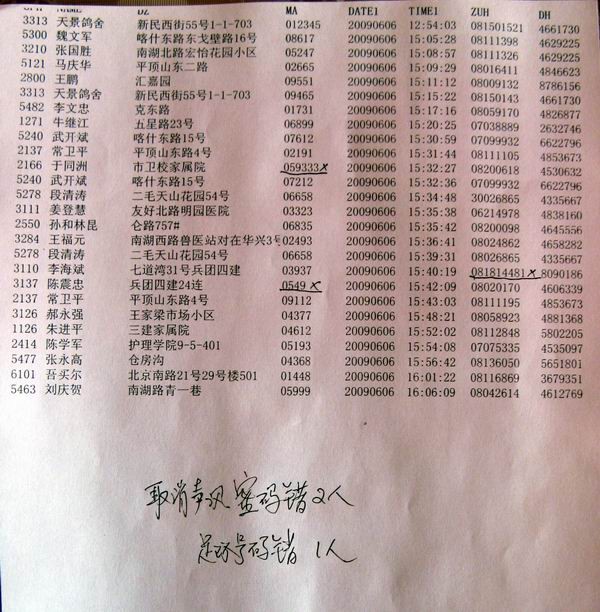 NAME DZ MA DATE1 TIME1 ZUH DH
3313 天景鸽舍 新民西街55号1-1-703 012345 20090606 12:54:03 081501521 4661730
5300 魏文军 喀什东路东戈壁路16号 08617 20090606 15:05:28 08111398 4629225
3210 张国胜 南湖北路宏怡花园小区 05247 20090606 15:08:57 08111326 4629225
5121 马庆华 平顶山东二路 02665 20090606 15:09:29 08016411 4846623
2800 王鹏 汇嘉园 09551 20090606 15:11:12 08009132 8786156
3313 天景鸽舍 新民西街55号1-1-703 09465 20090606 15:15:22 08150143 4661730
5482 李文忠 克东路 01731 20090606 15:17:16 08059170 4826877
1271 牛继江 五星路23号 06899 20090606 15:20:25 07038889 2632746
5240 武开斌 喀什东路15号 07612 20090606 15:30:59 07099932 6622796
2137 常卫平 平顶山东路4号 02191 20090606 15:31:44 08111105 4853673
2166 于同洲 市卫校家属院 059333× 20090606 15:32:27 08200618 4530632
5240 武开斌 喀什东路15号 07212 20090606 15:32:36 07099932 6622796
5278 段清涛 二毛天山花园54号 06658 20090606 15:34:48 30026865 4335667
3111 姜登慧 友好北路明园医院 03323 20090606 15:35:38 06214978 4838160
2550 孙和林昆 仑路757# 06835 20090606 15:35:42 08200098 4645556
3284 王福元 南湖西路兽医站对在华兴3号 02493 20090606 15:36:41 08024862 4658282
5278 段清涛 二毛天山花园54号 06658 20090606 15:39:31 08026865 4335667
3110 李海斌 七道湾31号兵团四建 03937 20090606 15:40:19 081814481× 8090186
3137 陈震忠 兵团四建24连 0549 × 20090606 15:42:09 08020170 4606339
2137 常卫平 平顶山东路4号 09112 20090606 15:43:03 08111195 4853673
3126 郝永强 王家梁市场小区 04377 20090606 15:48:21 08058923 4881368
1126 朱进平 三建家属院 04612 20090606 15:52:02 08112848 5802205
2414 陈学军 护理学院9-5-401 05193 20090606 15:54:08 07075335 4535097
5477 张永高 仓房沟 04368 20090606 15:56:42 08136050 5651801
6101 吾买尔 北京南路21号29号楼501 01448 20090606 16:01:22 08116869 3679351
5463 刘庆贺 南湖路青一巷 05999 20090606 16:06:09 08042614 4612769
取消声讯密码错2人
足环号码错 1人